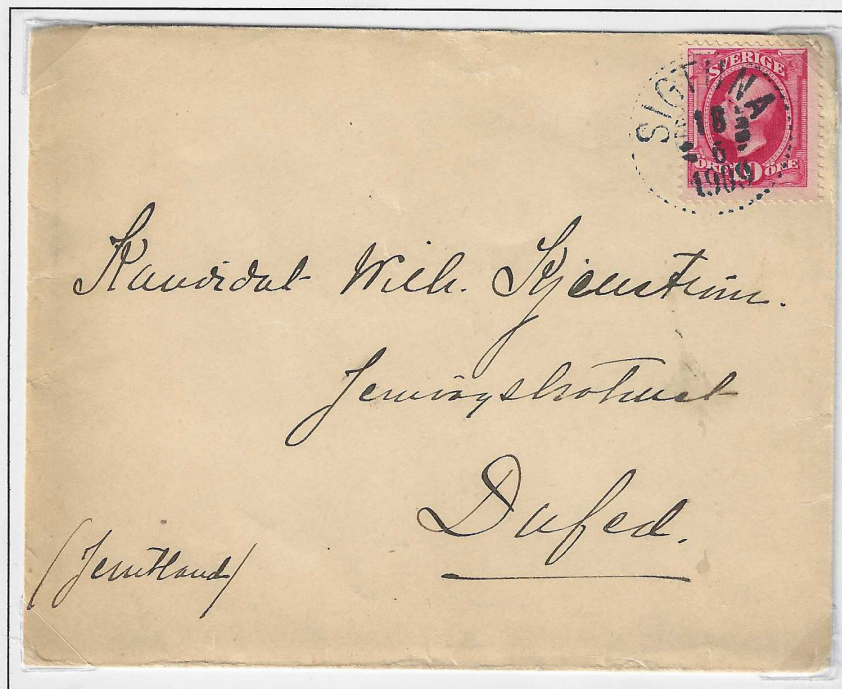 SVERIGE
SIGTUNA
18
6
1909
ÖRE 10 ÖRE
Kandidat Wilh. Kjellström.
Jernvägshotellet
Dufed.
(Jemtland)